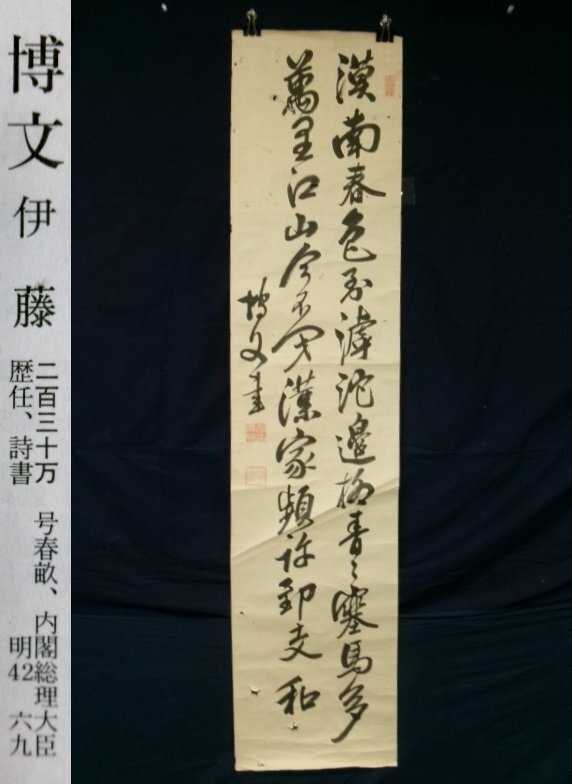 漠南春色到滹沱邊柳青〻塞馬多
萬里江山今不閉漢家頻許郅支和
博文書
博文 伊藤
二百三十万 号春畝、内閣総理大臣
歴任、詩書 明42 六九